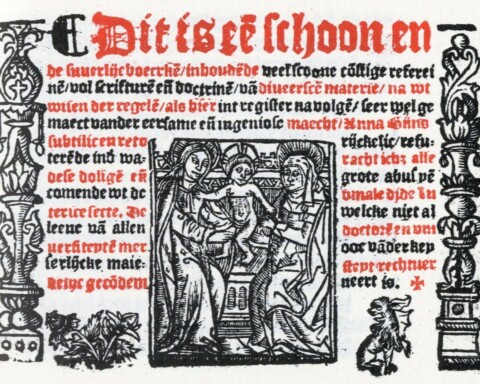 Dit is eē schoon en
de suuerlijc boecxkē/ inhoudēde veel scoone cōstige referei
nē/ vol scrifturē eñ doctrinē/ vā diueerscē materie/ na wt
wisen der regelē/ als hier int register na volgē/ seer wel ge
maect vander eersame eñ ingeniose maecht/ Anna Bijns
subtilic en reto rijckelic/ refu-
terēde inð wa- alle
dese doligē eñ grote abusē
comende wt de vmaledide Lu
terice secte. De welcke niet al
leene vā allen doctorē en vni
uersiteytē mer ooc vāder key
serlijcke maie- steyt rechtuer
delijc gecōdem neert is.